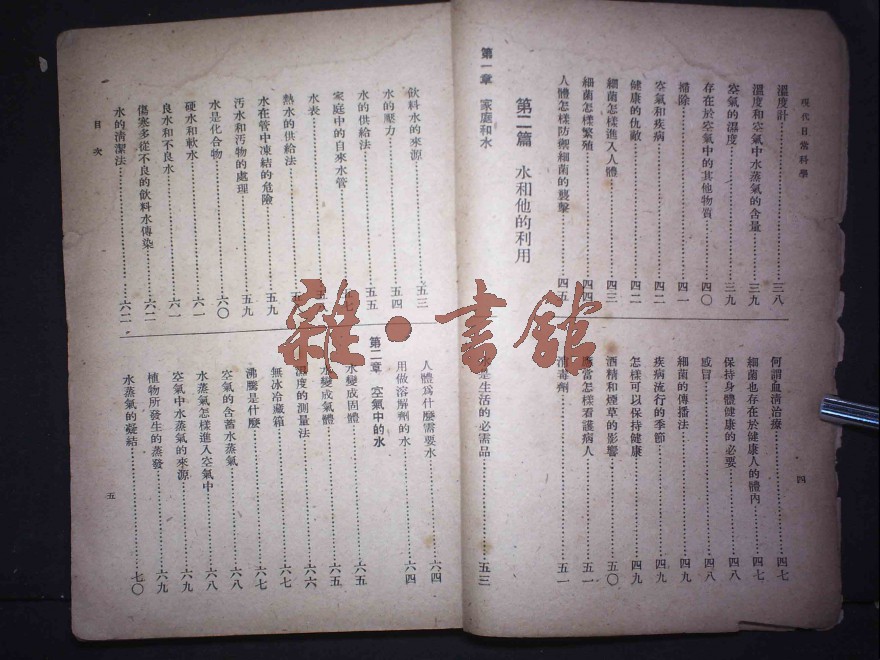 現代日常科學
四
溫度計……三八
溫度和空氣中水蒸氣的含量……三九
空氣的濕度……三九
存在於空氣中的其他物質……四〇
掃除……四一
空氣和疾病……四二
健康的仇敵……四二
細菌怎樣進入人體……四三
細菌怎樣繁殖……四四
人體怎樣防禦細菌的襲擊……四五
何謂血清治療……四七
細菌也存在於健康人的體內……四七
保持身體健康的必要……四八
感冒……四八
細菌的傳播法……四九
疾病流行的季節……四九
怎樣可以保持健康……四九
酒精和煙草的影響……五〇
應當怎樣看護病人……五一
消毒劑……五一
第二篇 水和他的利用
第一章 家庭和水
是生活的必需品……五三
飲料水的來源……五三
水的壓力……五四
水的供給法……五五
家庭中的自來水管
水表……五
熱水的供給法……五
水在管中凍結的危險……五九
汚水和汚物的處理……五九
水是化合物……六〇
硬水和軟水……六一
良水和不良水……六一
傷寒多從不良的飲料水傳染……六二
水的清潔法……六二
人體爲什麼需要水……六四
用做溶解劑的水……六四
第二章 空氣中的水
水變成固體……六五
水變成氣體……六五
濕度的測量法……六六
無冰冷藏箱……六七
沸騰是什麼……六七
空氣的含蓄水蒸氣……六八
水蒸氣怎樣進入空氣中……六八
空氣中水蒸氣的來源……六九
植物所發生的蒸發……六九
水蒸氣的凝結……七〇
目次
五
雜·書館